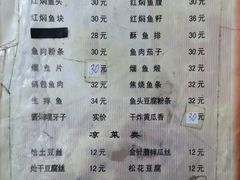 红焖鱼头 30元 红焖鱼腹 30元
红焖鱼块 30元 红焖鱼籽 36元
28元 酥鱼排 30元
鱼肉粉条 30元 鱼肉茄子 30元
熘鱼片 30元 熘鱼煅 32元
锅包鱼肉 32元 焦烧鱼条 32元
生拌鱼 34元 鱼头豆腐粉条 32元
酱焖嘎牙子 实价 干炸黄瓜香 30元
凉菜类
炝土豆丝 12元 金针蘑拌瓜丝 12元
炝干豆腐丝 12元 松花豆腐 12元